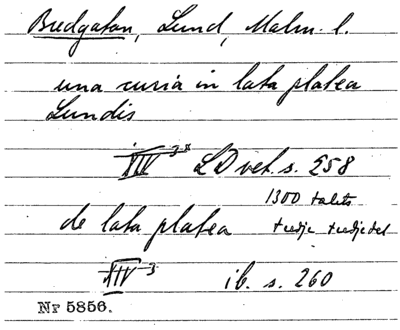 Bredgatan, Lund, Malm. l.
una curia in lata platea
Lundis
XIV 3x LD vet. s. 258
1300 talets
de lata platea tredje tredjedel
XIV 3 ib. s. 260
Nr 5856.